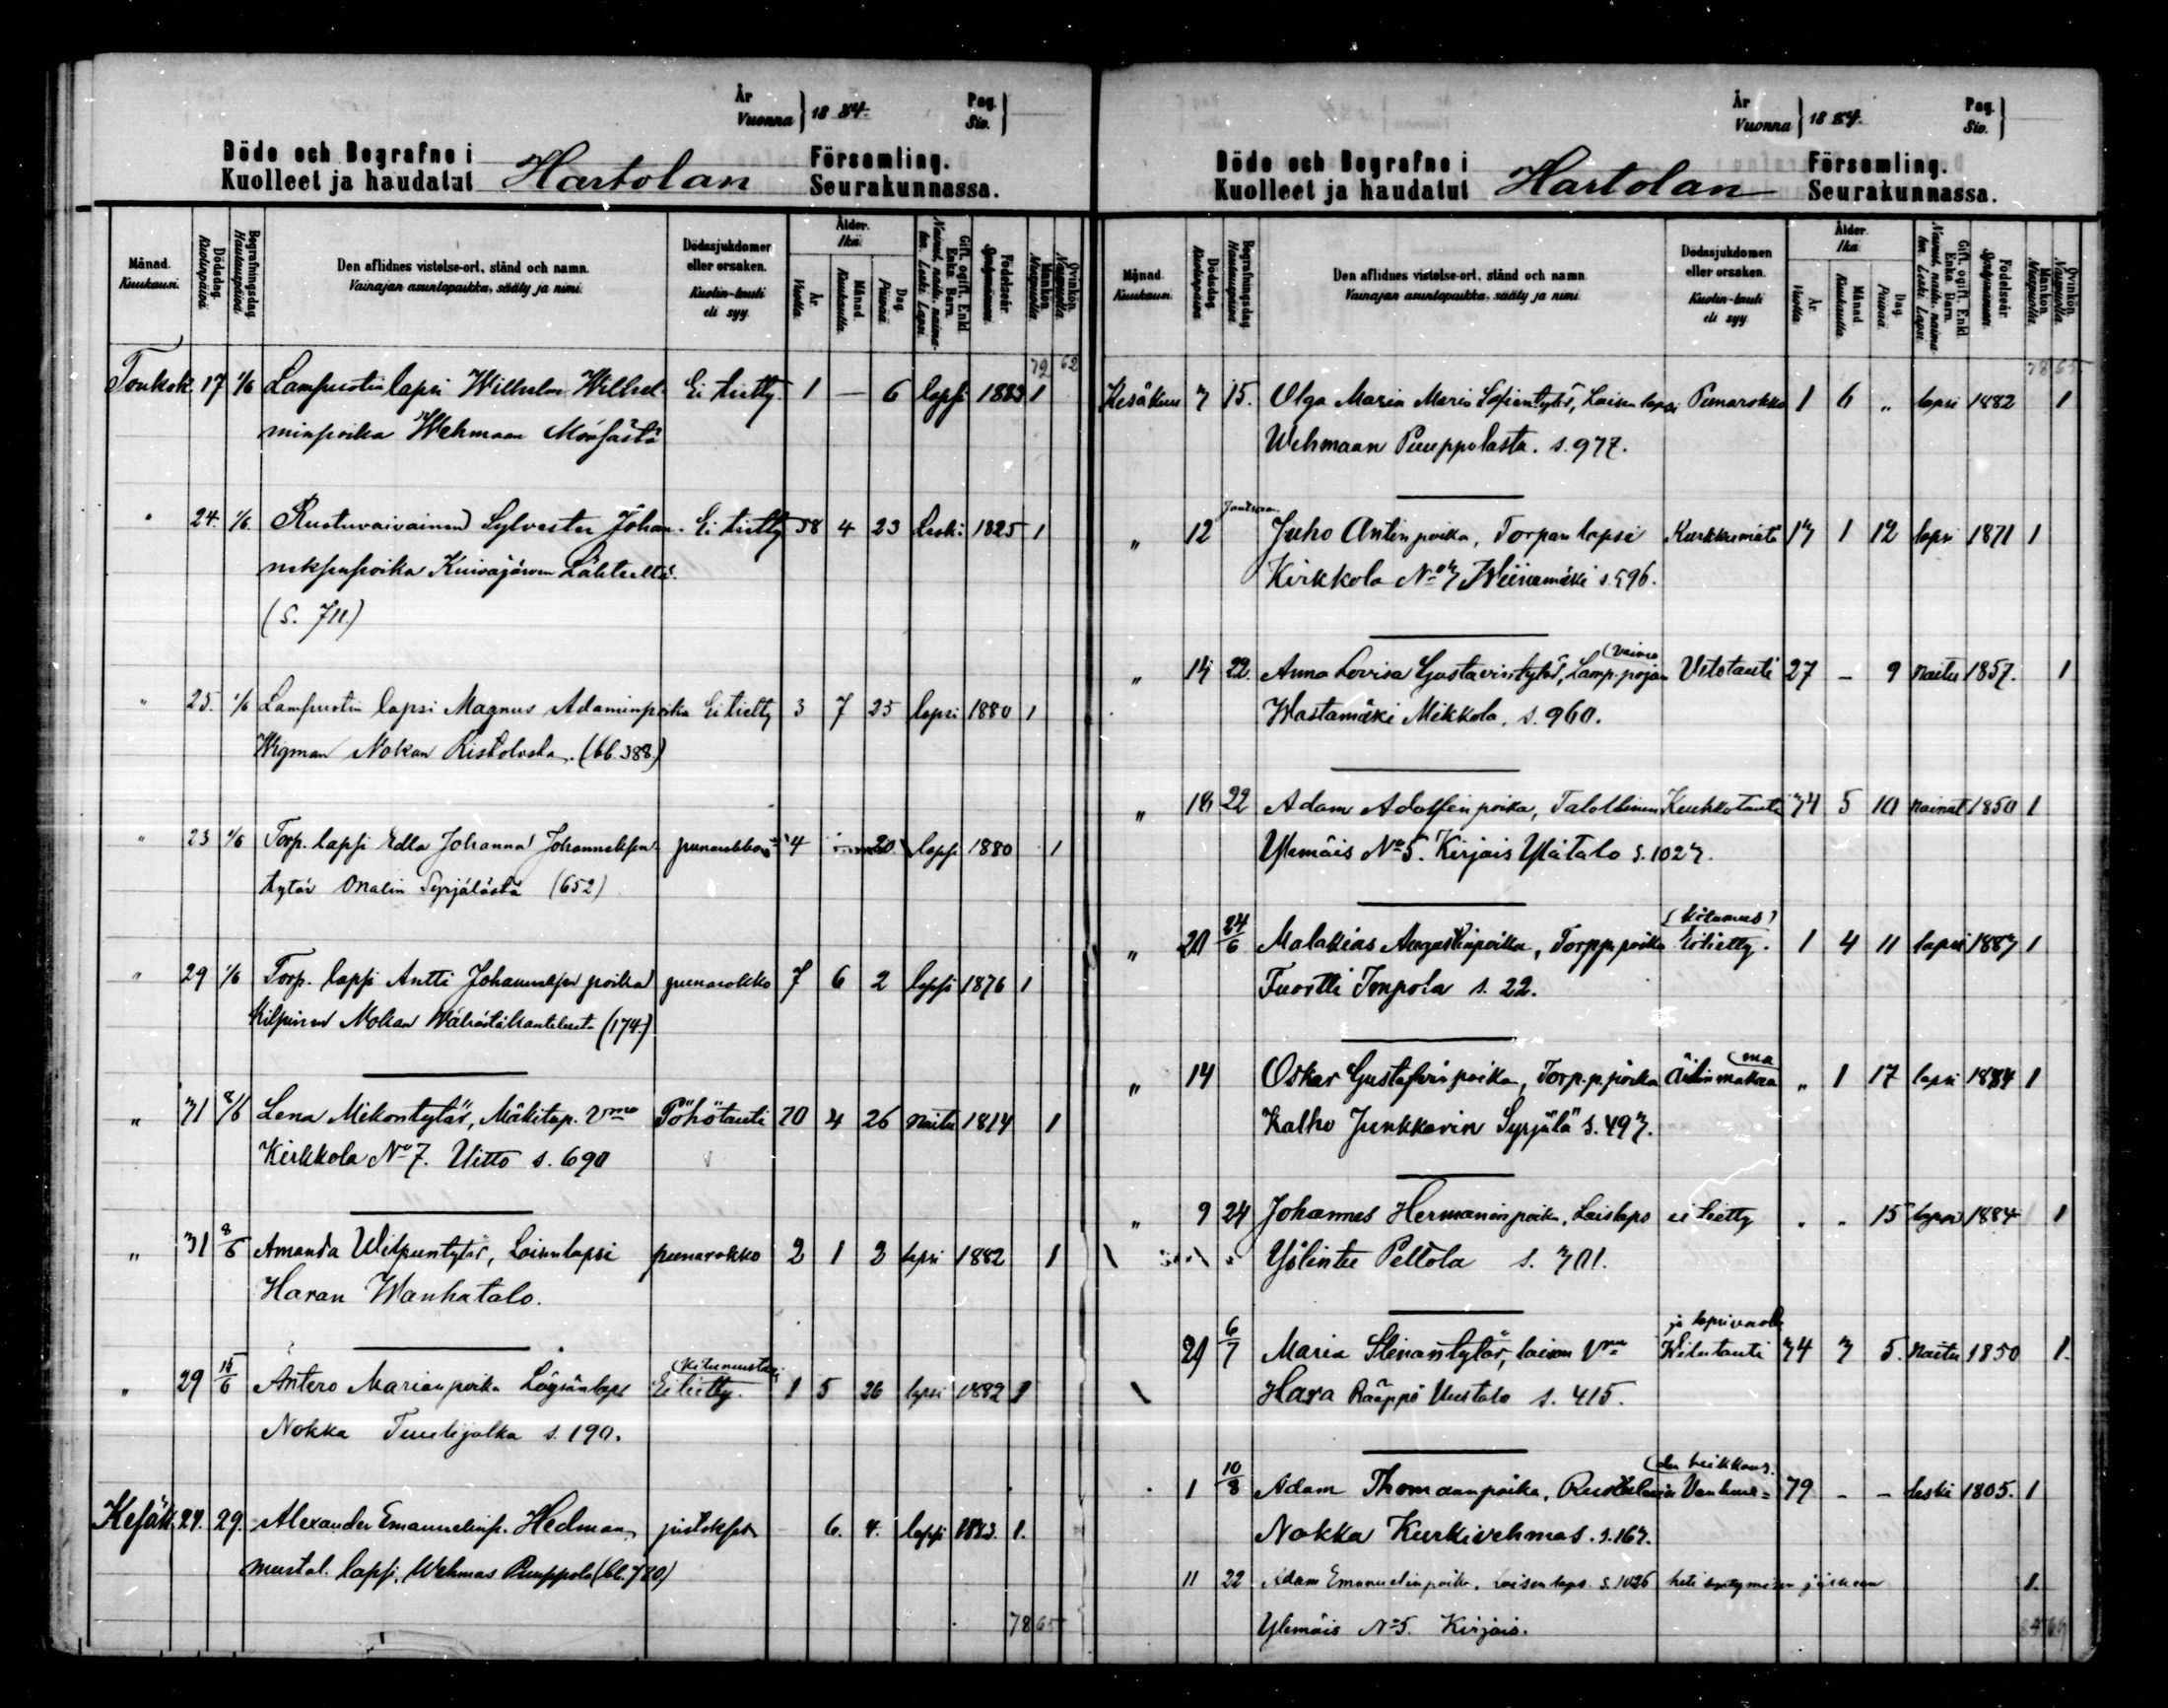 År
Vuonna } 1884.
Pag.
Siv. }
Döde och Begrafne i
Kuolleet ja haudatut Hartolan
Församling.
Seurakunnassa.
Månad.
Kuukausi.
Dödsdag.
Kuolinpäivä.
Begrafningsdag.
Hautauspäivä.
Den aflidnes vistelse-ort, stånd och namn.
Vainajan asuntopaikka, sääty ja nimi.
Dödssjukdomen
eller orsaken.
Kuolin-tauti
eli syy.
Ålder.
Ikä.
År.
Vuotta.
Månad.
Kuukautta.
Dag.
Päivää.
Gift, ogift. Enkl.
Enka. Barn.
Födelseår.
Syntymävuosi.
Mankön.
Miespuolia.
Qvinkön.
Naispuolia.
72 62
Toukok. 17 1/6 Lampuotin lapsi Wilhelm Wilhel- Ei tietty. 1 — 6 lapsi 1883 1
minpoika Wehmaan
" 24. 1/6. Ruotuvaivainen Sylvester Johan- Ei tietty 58 4 23 Leski 1825 1
neksenpoika Kuivajärven Lähteeltä.
(S. 711)
" 25. 1/6 Lampuotin lapsi Magnus Adaminpoika Ei tietty 3 7 25 lapsi 1880 1
Wigman Nokan Ristolasta. (bl. 388.)
" 23 1/6 Torp. lapsi Edla Johanna Johanneksen punarokko 4 20 lapsi 1880 1
tytär Onalin Syrjälästä (652)
" 29 1/6 Torp. lapsi Antti Johanneksen poika punarokko 7 6 2 lapsi 1876 1
Kilpinen Nokan (174.)
" 31 8/6 Lena Mikontytär, Mäkitup. Vmo Pöhötauti 70 4 26 Naitu 1814 1
Kirkkola No 7. Uitto s. 690
" 31 8/6 Amanda Wilpuntytär, Loisenlapsi punarokko 2 1 2 lapsi 1882 1
Haran Wanhatalo.
" 29 15/6 Antero Marianpoika Ei tietty. 1 5 26 lapsi 1882 1
Nokka s. 190.
Kesäk. 24. 29. Alexander Emanuelinp. Hedman, pistoksen 6. 4. lapsi 1883. 1.
mustal. lapsi, Wehmas Puuppola (bl. 780)
78 65
År
Vuonna } 1884.
Pag.
Siv. }
Döde och Begrafne i
Kuolleet ja haudatut Hartolan
Församling.
Seurakunnassa.
Månad.
Kuukausi.
Dödsdag.
Kuolinpäivä.
Begrafningsdag.
Hautauspäivä.
Den aflidnes vistelse-ort, stånd och namn.
Vainajan asuntopaikka, sääty ja nimi.
Dödssjukdomen
eller orsaken.
Kuolin-tauti
eli syy.
Ålder.
Ikä.
År.
Vuotta.
Månad.
Kuukautta.
Dag.
Päivää.
Gift, ogift. Enkl.
Enka. Barn.
Födelseår.
Syntymävuosi.
Mankön.
Miespuolia.
Qvinkön.
Naispuolia.
78 65
Kesäkuu 3 15. Olga Maria Maria Sofiantytär, Loisen lapsi Punarokko 1 6 " lapsi 1882 1
Wehmaan Puuppolasta. s. 977.
" 12 Juho Antinpoika, Torpan lapsi Kurkkumätä 13 1 12 lapsi 1871 1
Kirkkola No 7 s. 596.
(vaimo
" 14 22. Anna Lovisa Gustavintytär, Lamp. pojan Vilutauti 27 — 9 Naitu 1857. 1
Wastamäki Mikkola, s. 960.
" 18 22 Adam Adolfinpoika, Talollinen Keuhkotauti 34 5 10 Nainut 1850 1
Ylemäis No 5. Kirjais Ylätalo s. 1023.
(kitumus)
" 20 24/6 Malakias Augustinpoika, Torpp. poika Ei tietty. 1 4 11 lapsi 1883 1
Tuortti Impola s. 22.
(ma
" 14 Oskar Gustafinpoika, Torp. p. poika " 1 17 lapsi 1884 1
Kalho Junkkarin Syrjälä s. 493.
" 9 24 Johannes Hermaninpoika, Loislaps ei tietty " " 15 lapsi 1884 1
Yölintu Peltola s. 301.
29 6/7 Maria Stinantytär, loisen Vmo Vilutauti 34 3 5. Naitu 1850 1.
Hara Rääppö Uustalo s. 415.
(den heikkous.
1 10/8 Adam Thomaanpoika, Vanhuu= 79 — — leski 1805. 1
Nokka Kurkivehmas. s. 163.
11 22 Adam Emanuelinpoika, loisen laps. s. 1026 heti syntymisen jälkeen 1.
Ylemäis No 5. Kirjais.